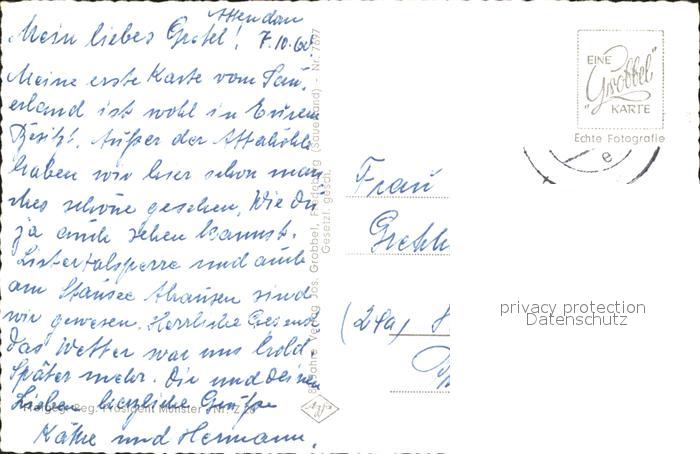 Attendorn
Mein liebes Gretel! 7.10.60.
Meine erste Karte vom Sau,
erland ist wohl in Eurem
Besitz. Außer der Attahöhle
haben wir hier schon man
ches schöne gesehen, Wie Du
ja auch sehen kannst.
Listertalsperre und auch
am Stausee Ahausen sind
wir gewesen. Herrliche Gegend
das Wetter war uns hold
Später mehr. Dir und Deinen
Lieben herzliche Grüße
Käthe und Hermann.
Freigeg. Reg. Präsident Münster Nr. Z
Verlag Jos. Grobbel, Fredeburg (Sauerland) - Nr.
Gesetzl. gesch.
EINE
"Grobbel"
KARTE
Echte Fotografie
e
Frau
(24a)
privacy protection
Datenschutz